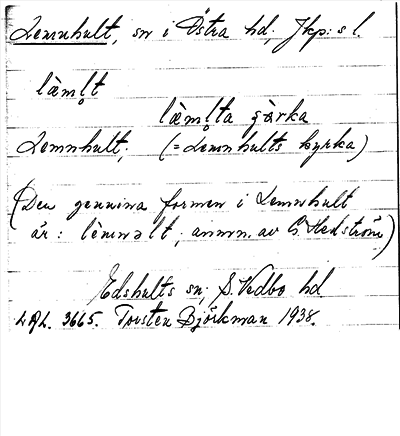 Lemnhult, sn i Östra hd, Jkp:s l.
læ̀ml̥t
læ̀ml̥ta ɕærka
Lemnhult; (= Lemnhults kyrka)
(Den genuina formen i Lemnhult
är: lèmnəlt, anmn. av G. Hedström)
Edshults sn, S. Vedbo hd
LAL. 3665. Torsten Björkman 1938.